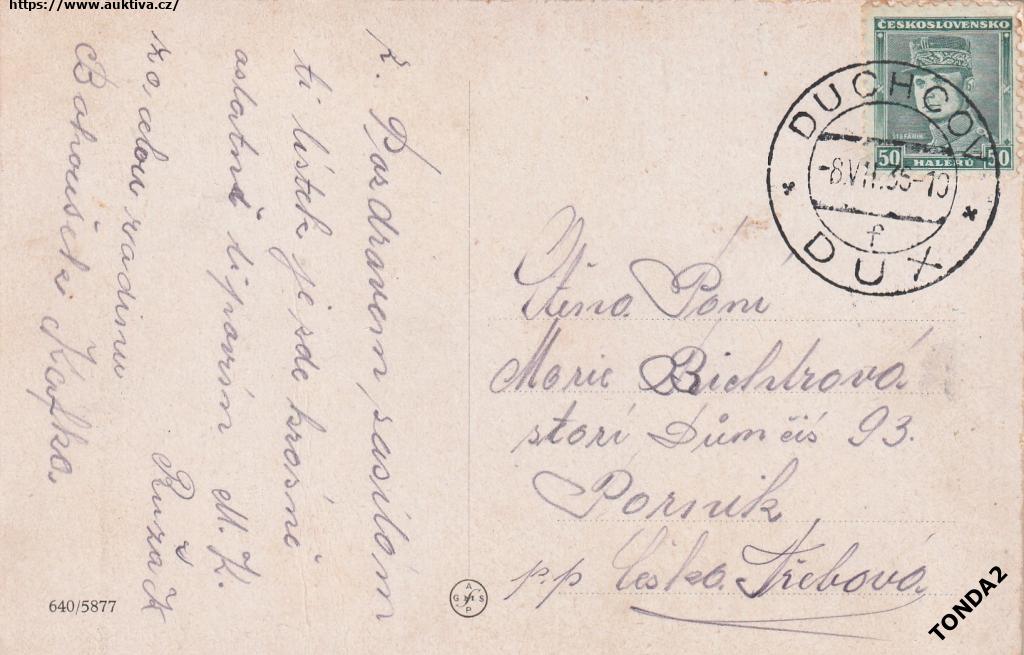 https://www.auktiva.cz/
ČESKOSLOVENSKO
ŠTEFÁNIK
50 HALÉŘŮ 50
DUCHCOV
-8.VII.35-10
f
DUX
Z. Pozdravem zasílám
ti lístek je zde krásně
ostatně ti povím M. Z.
za celou rodinu Ruža K
Bohoušek Kafka.
Ctěná Paní
Marie Richtrová
starí Dům čís 93.
Parnik
p.p Česká Třebová
640/5877
TONDA2